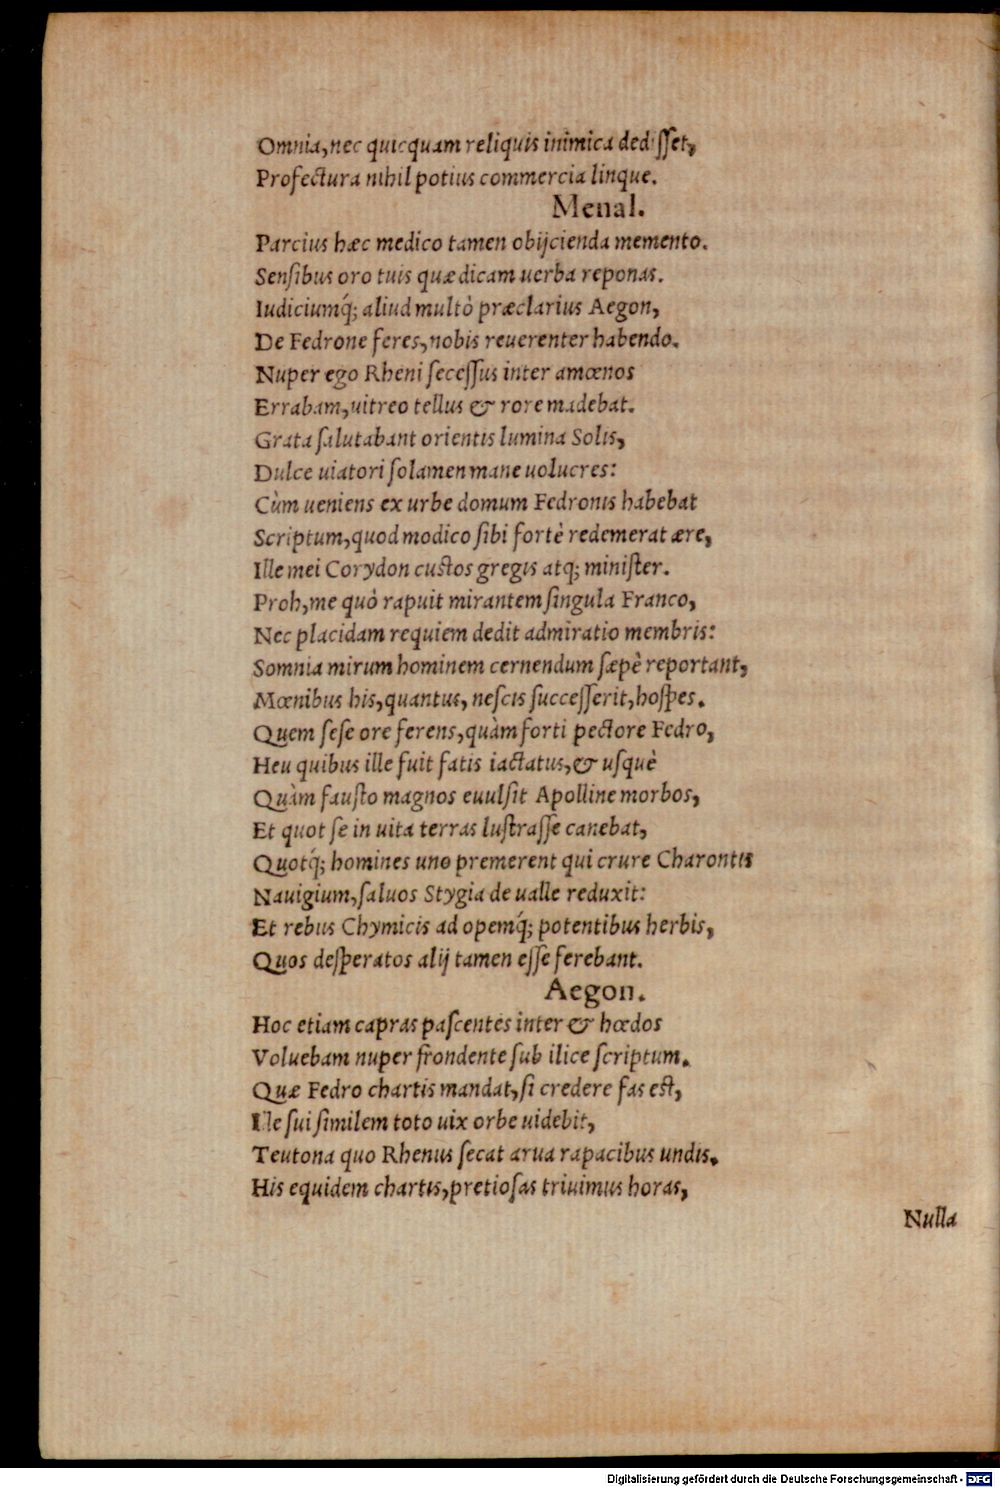 Omnia, nec quicquam reliquis inimica dedisset,
Profectura nihil potius commercia linque.
Menal.
Parcius hæc medico tamen obijcienda memento.
Sensibus oro tuis quæ dicam uerba reponas.
Iudiciumq́; aliud multò præclarius Aegon,
De Fedrone feres, nobis reuerenter habendo.
Nuper ego Rheni secessus inter amœnos
Errabam, uitreo tellus & rore madebat.
Grata salutabant orientis lumina Solis,
Dulce uiatori solamen mane uolucres:
Cùm ueniens ex urbe domum Fedronis habebat
Scriptum, quod modico sibi fortè redemerat ære,
Ille mei Corydon custos gregis atq; minister.
Proh, me quò rapuit mirantem singula Franco,
Nec placidam requiem dedit admiratio membris:
Somnia mirum hominem cernendum sæpè reportant,
Mœnibus his, quantus, nescis successerit, hospes.
Quem sese ore ferens, quàm forti pectore Fedro,
Heu quibus ille fuit fatis iactatus, & usquè
Quàm fausto magnos euulsit Apolline morbos,
Et quot se in uita terras lustrasse canebat,
Quotq́; homines uno premerent qui crure Charontis
Nauigium, saluos Stygia de ualle reduxit:
Et rebus Chymicis ad opemq́; potentibus herbis,
Quos desperatos alij tamen esse ferebant.
Aegon.
Hoc etiam capras pascentes inter & hœdos
Voluebam nuper frondente sub ilice scriptum.
Quæ Fedro chartis mandat, si credere fas est,
Ille sui similem toto uix orbe uidebit,
Teutona quo Rhenus secat arua rapacibus undis.
His equidem chartis, pretiosas triuimus horas,
Nulla
Digitalisierung gefördert durch die Deutsche Forschungsgemeinschaft - DFG